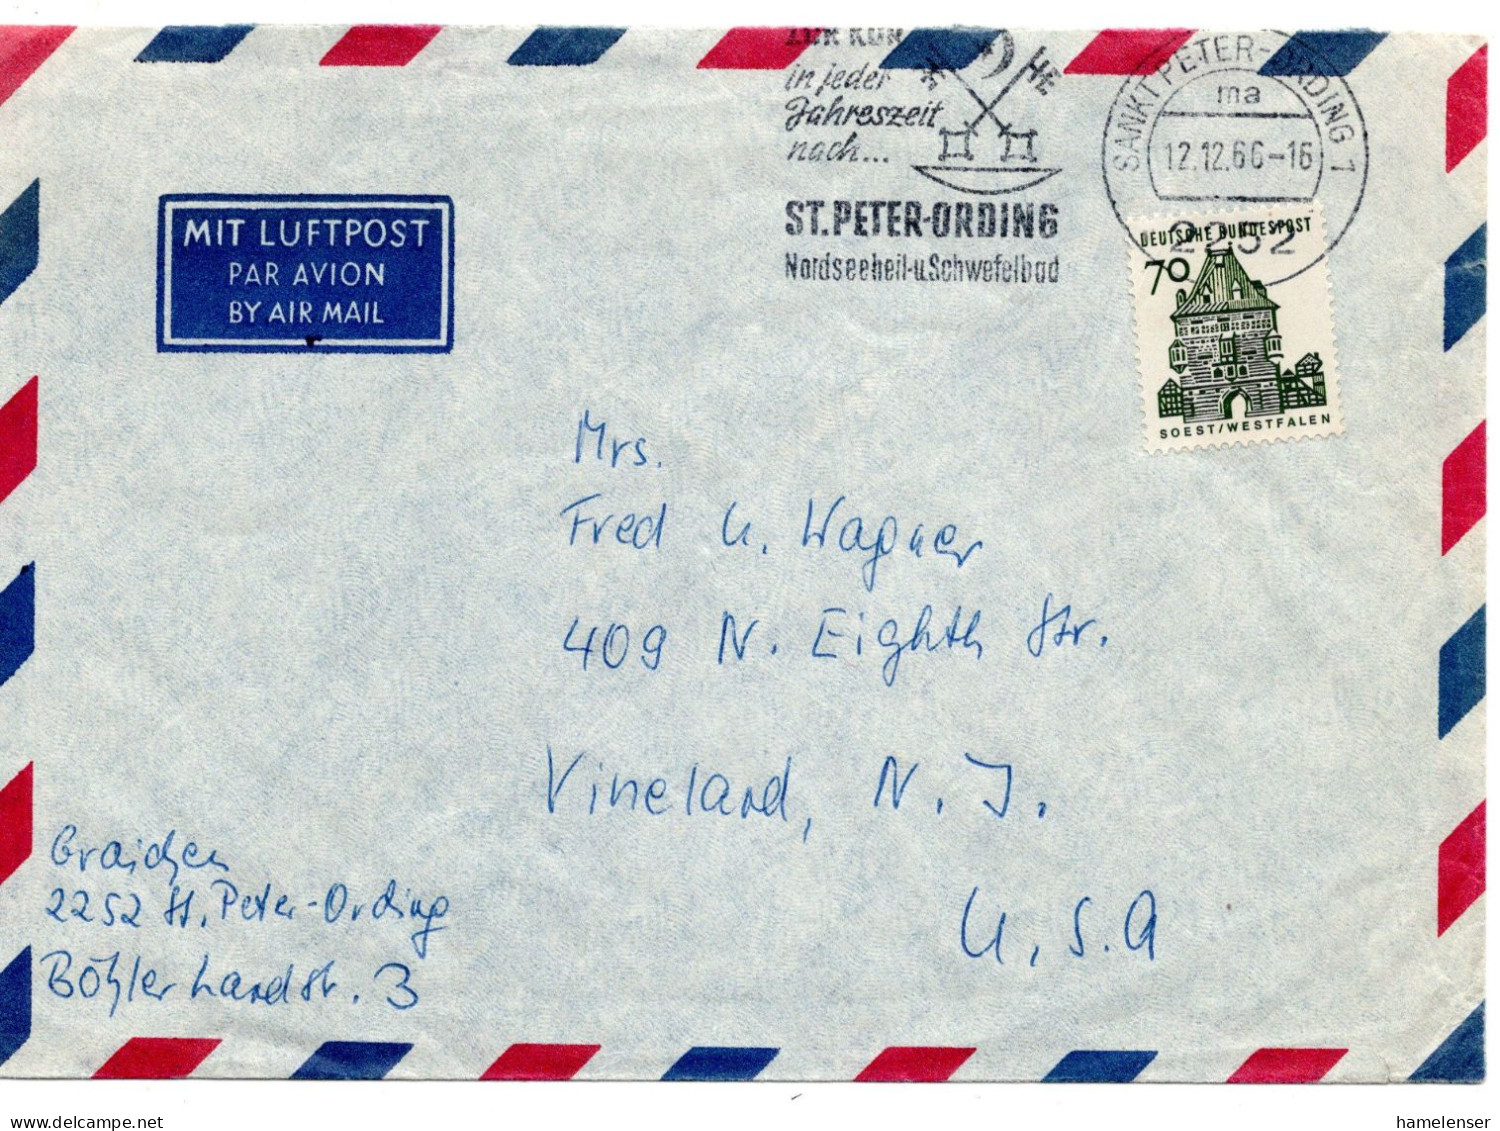 ZUR KUR
in jeder
Jahreszeit
nach...
ST. PETER-ORDING
Nordseeheil-u.Schwefelbad
HE
SANKT PETER-ORDING 1
ma
12.12.66-16
2252
MIT LUFTPOST
PAR AVION
BY AIR MAIL
DEUTSCHE BUNDESPOST
70
SOEST/WESTFALEN
Mrs.
Fred U. Wagner
409 N. Eighth Str.
Vineland, N. J.
U.S.A
Graichen
2252 St. Peter-Ording
Böhler Landstr. 3
hamelenser